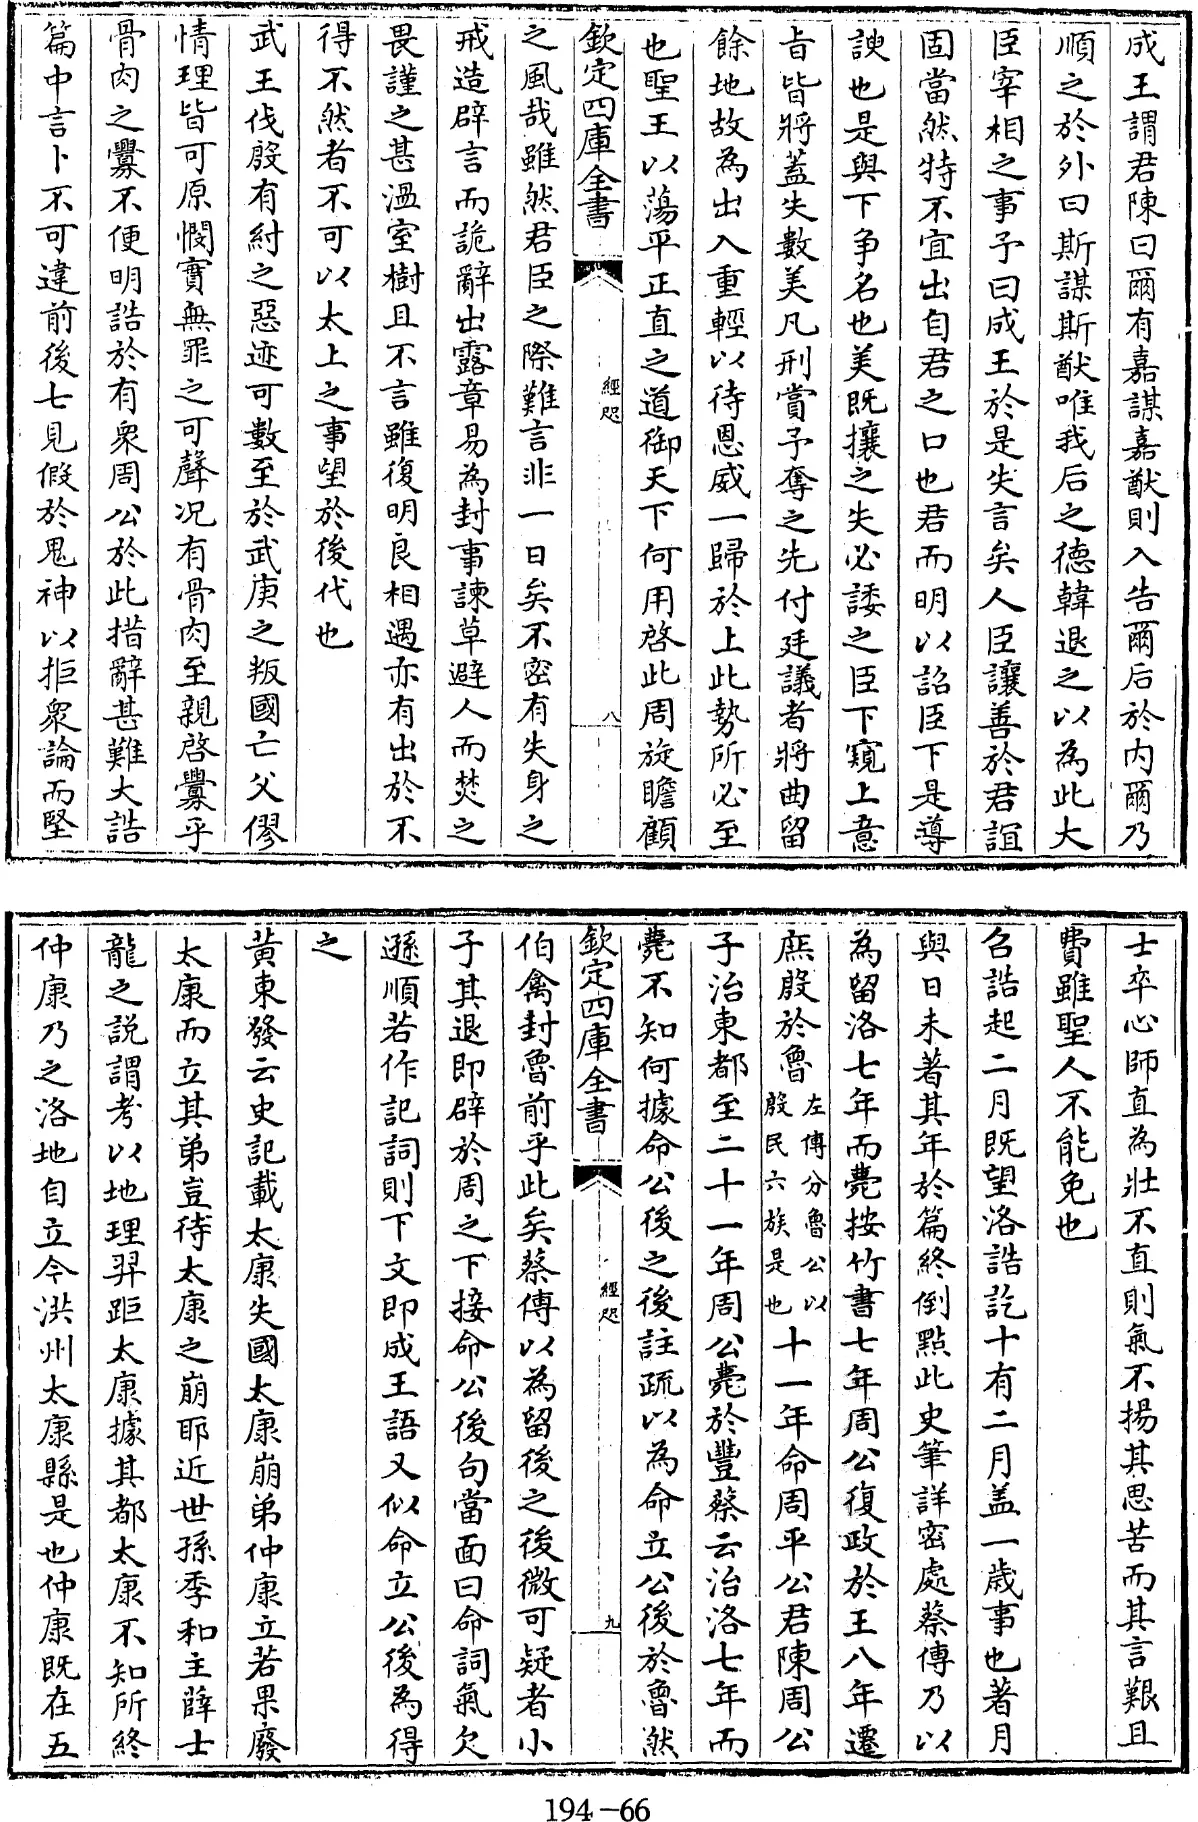 成王謂君陳曰爾有嘉謀嘉猷則入告爾后於内爾乃
順之於外曰斯謀斯猷唯我后之德韓退之以為此大
臣宰相之事予曰成王於是失言矣人臣讓善於君誼
固當然特不宜出自君之口也君而明以詔臣下是導
諛也是與下爭名也美既攘之失必諉之臣下窺上意
㫖皆將蓋失數美凡刑賞予奪之先付廷議者將曲留
餘地故為出入重輕以待恩威一歸於上此勢所必至
也聖王以蕩平正直之道御天下何用啓此周旋瞻顧
欽定四庫全書
經咫
八
之風哉雖然君臣之際難言非一日矣不密有失身之
戒造辟言而詭辭出露章易為封事諫草避人而焚之
畏謹之甚溫室樹且不言雖復明良相遇亦有出於不
得不然者不可以太上之事望於後代也
武王伐殷有紂之惡迹可數至於武庚之叛國亡父僇
情理皆可原憫實無罪之可聲况有骨肉至親啓釁乎
骨肉之釁不便明誥於有衆周公於此措辭甚難大誥
篇中言卜不可違前後七見假於鬼神以拒衆論而堅
士卒心師直為壯不直則氣不揚其思苦而其言艱且
費雖聖人不能免也
召誥起二月既望洛誥訖十有二月盖一歲事也著月
與日未著其年於篇終倒點此史筆詳密處蔡傳乃以
為留洛七年而薨按竹書七年周公復政於王八年遷
庶殷於魯左傳分魯公以殷民六族是也十一年命周平公君陳周公
子治東都至二十一年周公薨於豐蔡云治洛七年而
薨不知何據命公後之後註疏以為命立公後於魯然
欽定四庫全書
經咫
九
伯禽封魯前乎此矣蔡傳以為留後之後微可疑者小
子其退即辟於周之下接命公後句當面曰命詞氣欠
遜順若作記詞則下文即成王語又似命立公後為得
之
黃東發云史記載太康失國太康崩弟仲康立若果廢
太康而立其弟豈待太康之崩耶近世孫季和主薛士
龍之説謂考以地理羿距太康據其都太康不知所終
仲康乃之洛地自立今洪州太康縣是也仲康既在五
194-66